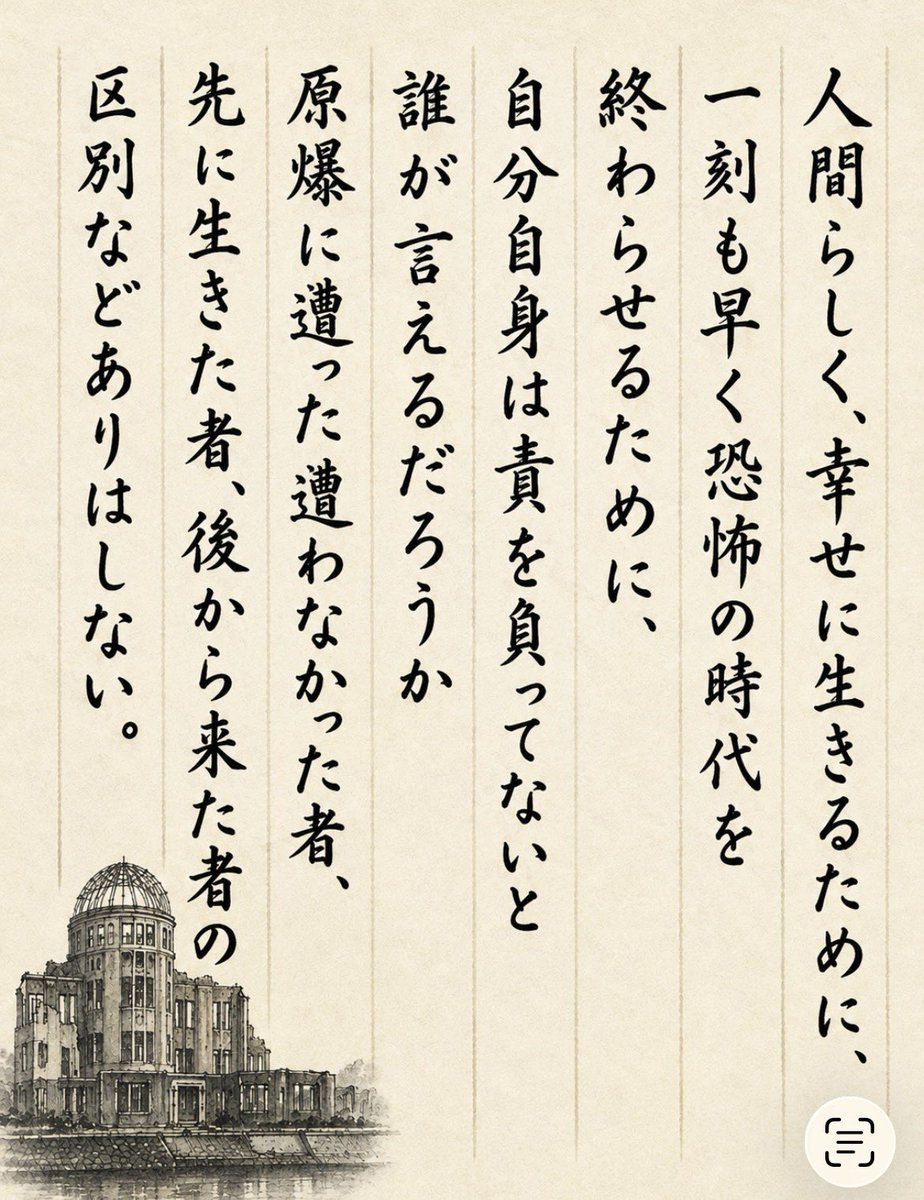 人間らしく、幸せに生きるために、
一刻も早く恐怖の時代を
終わらせるために、
自分自身は責を負ってないと
誰が言えるだろうか
原爆に遭った遭わなかった者、
先に生きた者、後から来た者の
区別などありはしない。